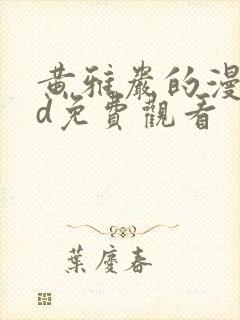 黄雅嚴的漫
d免費觀看
葉慶春